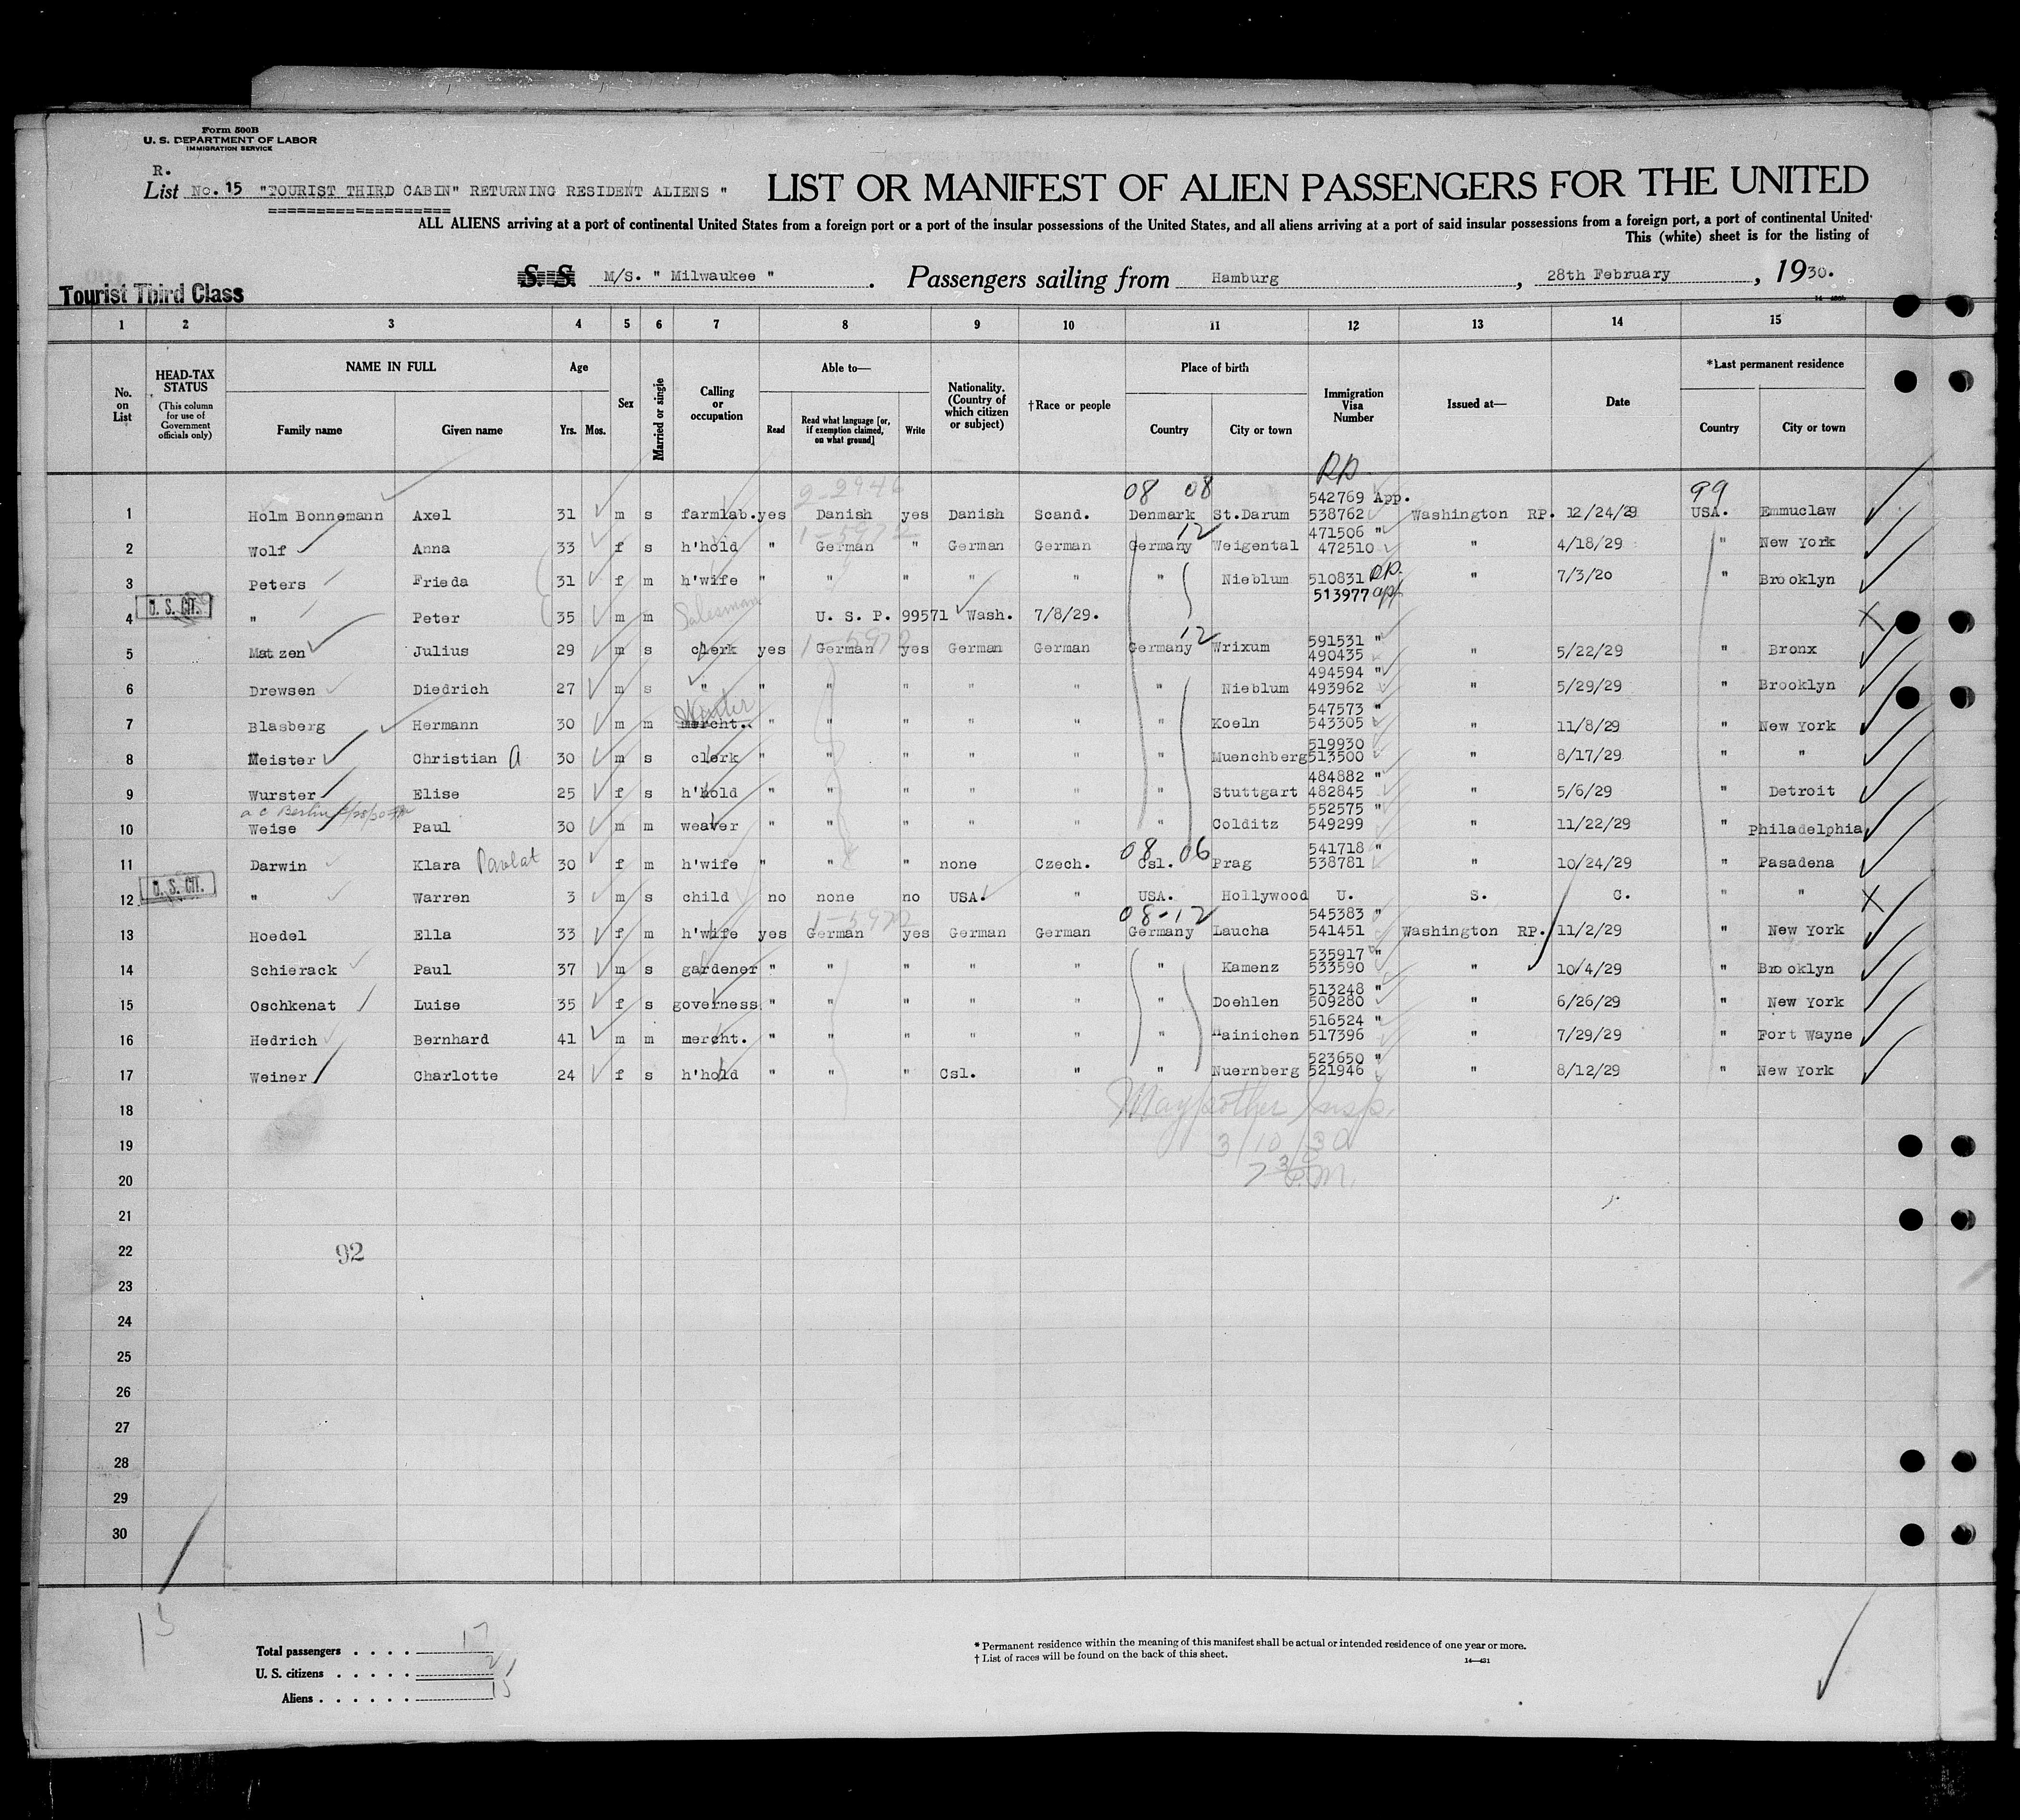 Form 500B
U. S. DEPARTMENT OF LABOR
IMMIGRATION SERVICE
R.
List No. 15 "TOURIST THIRD CABIN" RETURNING RESIDENT ALIENS "
LIST OR MANIFEST OF ALIEN PASSENGERS FOR THE UNITED
ALL ALIENS arriving at a port of continental United States from a foreign port or a port of the insular possessions of the United States, and all aliens arriving at a port of said insular possessions from a foreign port, a port of continental United
This (white) sheet is for the listing of
Tourist Third Class
S. S. M/S. " Milwaukee " . Passengers sailing from Hamburg , 28th February , 1930.
1 2 3 4 5 6 7 8 9 10 11 12 13 14 15
No. on List
HEAD-TAX STATUS (This column for use of Government officials only)
NAME IN FULL
Family name Given name
Age
Yrs. Mos.
Sex
Married or single
Calling or occupation
Able to—
Read Read what language [or, if exemption claimed, on what ground] Write
Nationality. (Country of which citizen or subject)
†Race or people
Place of birth
Country City or town
Immigration Visa Number
Issued at—
Date
*Last permanent residence
Country City or town
RP
2-2946 08 08 542769 App. 99
1 Holm Bonnemann Axel 31 m s farmlab. yes Danish yes Danish Scand. Denmark St.Darum 538762 Washington RP. 12/24/29 USA. Emmuclaw
1-5972 12 471506 "
2 Wolf Anna 33 f s h'hold " German " German German Germany Weigental 472510 " 4/18/29 " New York
3 Peters Frieda 31 f m h'wife " " " " " " Nieblum 510831 RP. " 7/3/20 " Brooklyn
513977 app
U. S. CIT.
4 " Peter 35 m m Salesman U. S. P. 99571 Wash. 7/8/29.
1-5972 12 591531 "
5 Matzen Julius 29 m s clerk yes German yes German German Germany Wrixum 490435 " 5/22/29 " Bronx
494594 "
6 Drewsen Diedrich 27 m s " " " " " " " Nieblum 493962 " 5/29/29 " Brooklyn
547573 "
7 Blasberg Hermann 30 m m mercht. " " " " " " Koeln 543305 " 11/8/29 " New York
519930 "
8 Meister Christian A 30 m s clerk " " " " " " Muenchberg 513500 " 8/17/29 " "
484882 "
9 Wurster Elise 25 f s h'hold " " " " " " Stuttgart 482845 " 5/6/29 " Detroit
a c Berlin
552575 "
10 Weise Paul 30 m m weaver " " " " " " Colditz 549299 " 11/22/29 " Philadelphia
08 06 541718 "
11 Darwin Klara Pavlat 30 f m h'wife " " " none Czech. Csl. Prag 538781 " 10/24/29 " Pasadena
U. S. CIT.
12 " Warren 3 m s child no none no USA. " USA. Hollywood U. S. C. " "
1-5972 08-12 545383 "
13 Hoedel Ella 33 f m h'wife yes German yes German German Germany Laucha 541451 Washington RP. 11/2/29 " New York
535917 "
14 Schierack Paul 37 m s gardener " " " " " " Kamenz 533590 " 10/4/29 " Brooklyn
513248 "
15 Oschkenat Luise 35 f s governess " " " " " " Doehlen 509280 " 6/26/29 " New York
516524 "
16 Hedrich Bernhard 41 m m mercht. " " " " " " Hainichen 517396 " 7/29/29 " Fort Wayne
523650 "
17 Weiner Charlotte 24 f s h'hold " " " Csl. " " Nuernberg 521946 " 8/12/29 " New York
18 Maypother Insp.
19 3/10/30
20 7 30 P.M.
21
22 92
23
24
25
26
27
28
29
30
15
Total passengers . . . . 17
U. S. citizens . . . . . 2
Aliens . . . . . . 15
* Permanent residence within the meaning of this manifest shall be actual or intended residence of one year or more.
† List of races will be found on the back of this sheet.
14—431